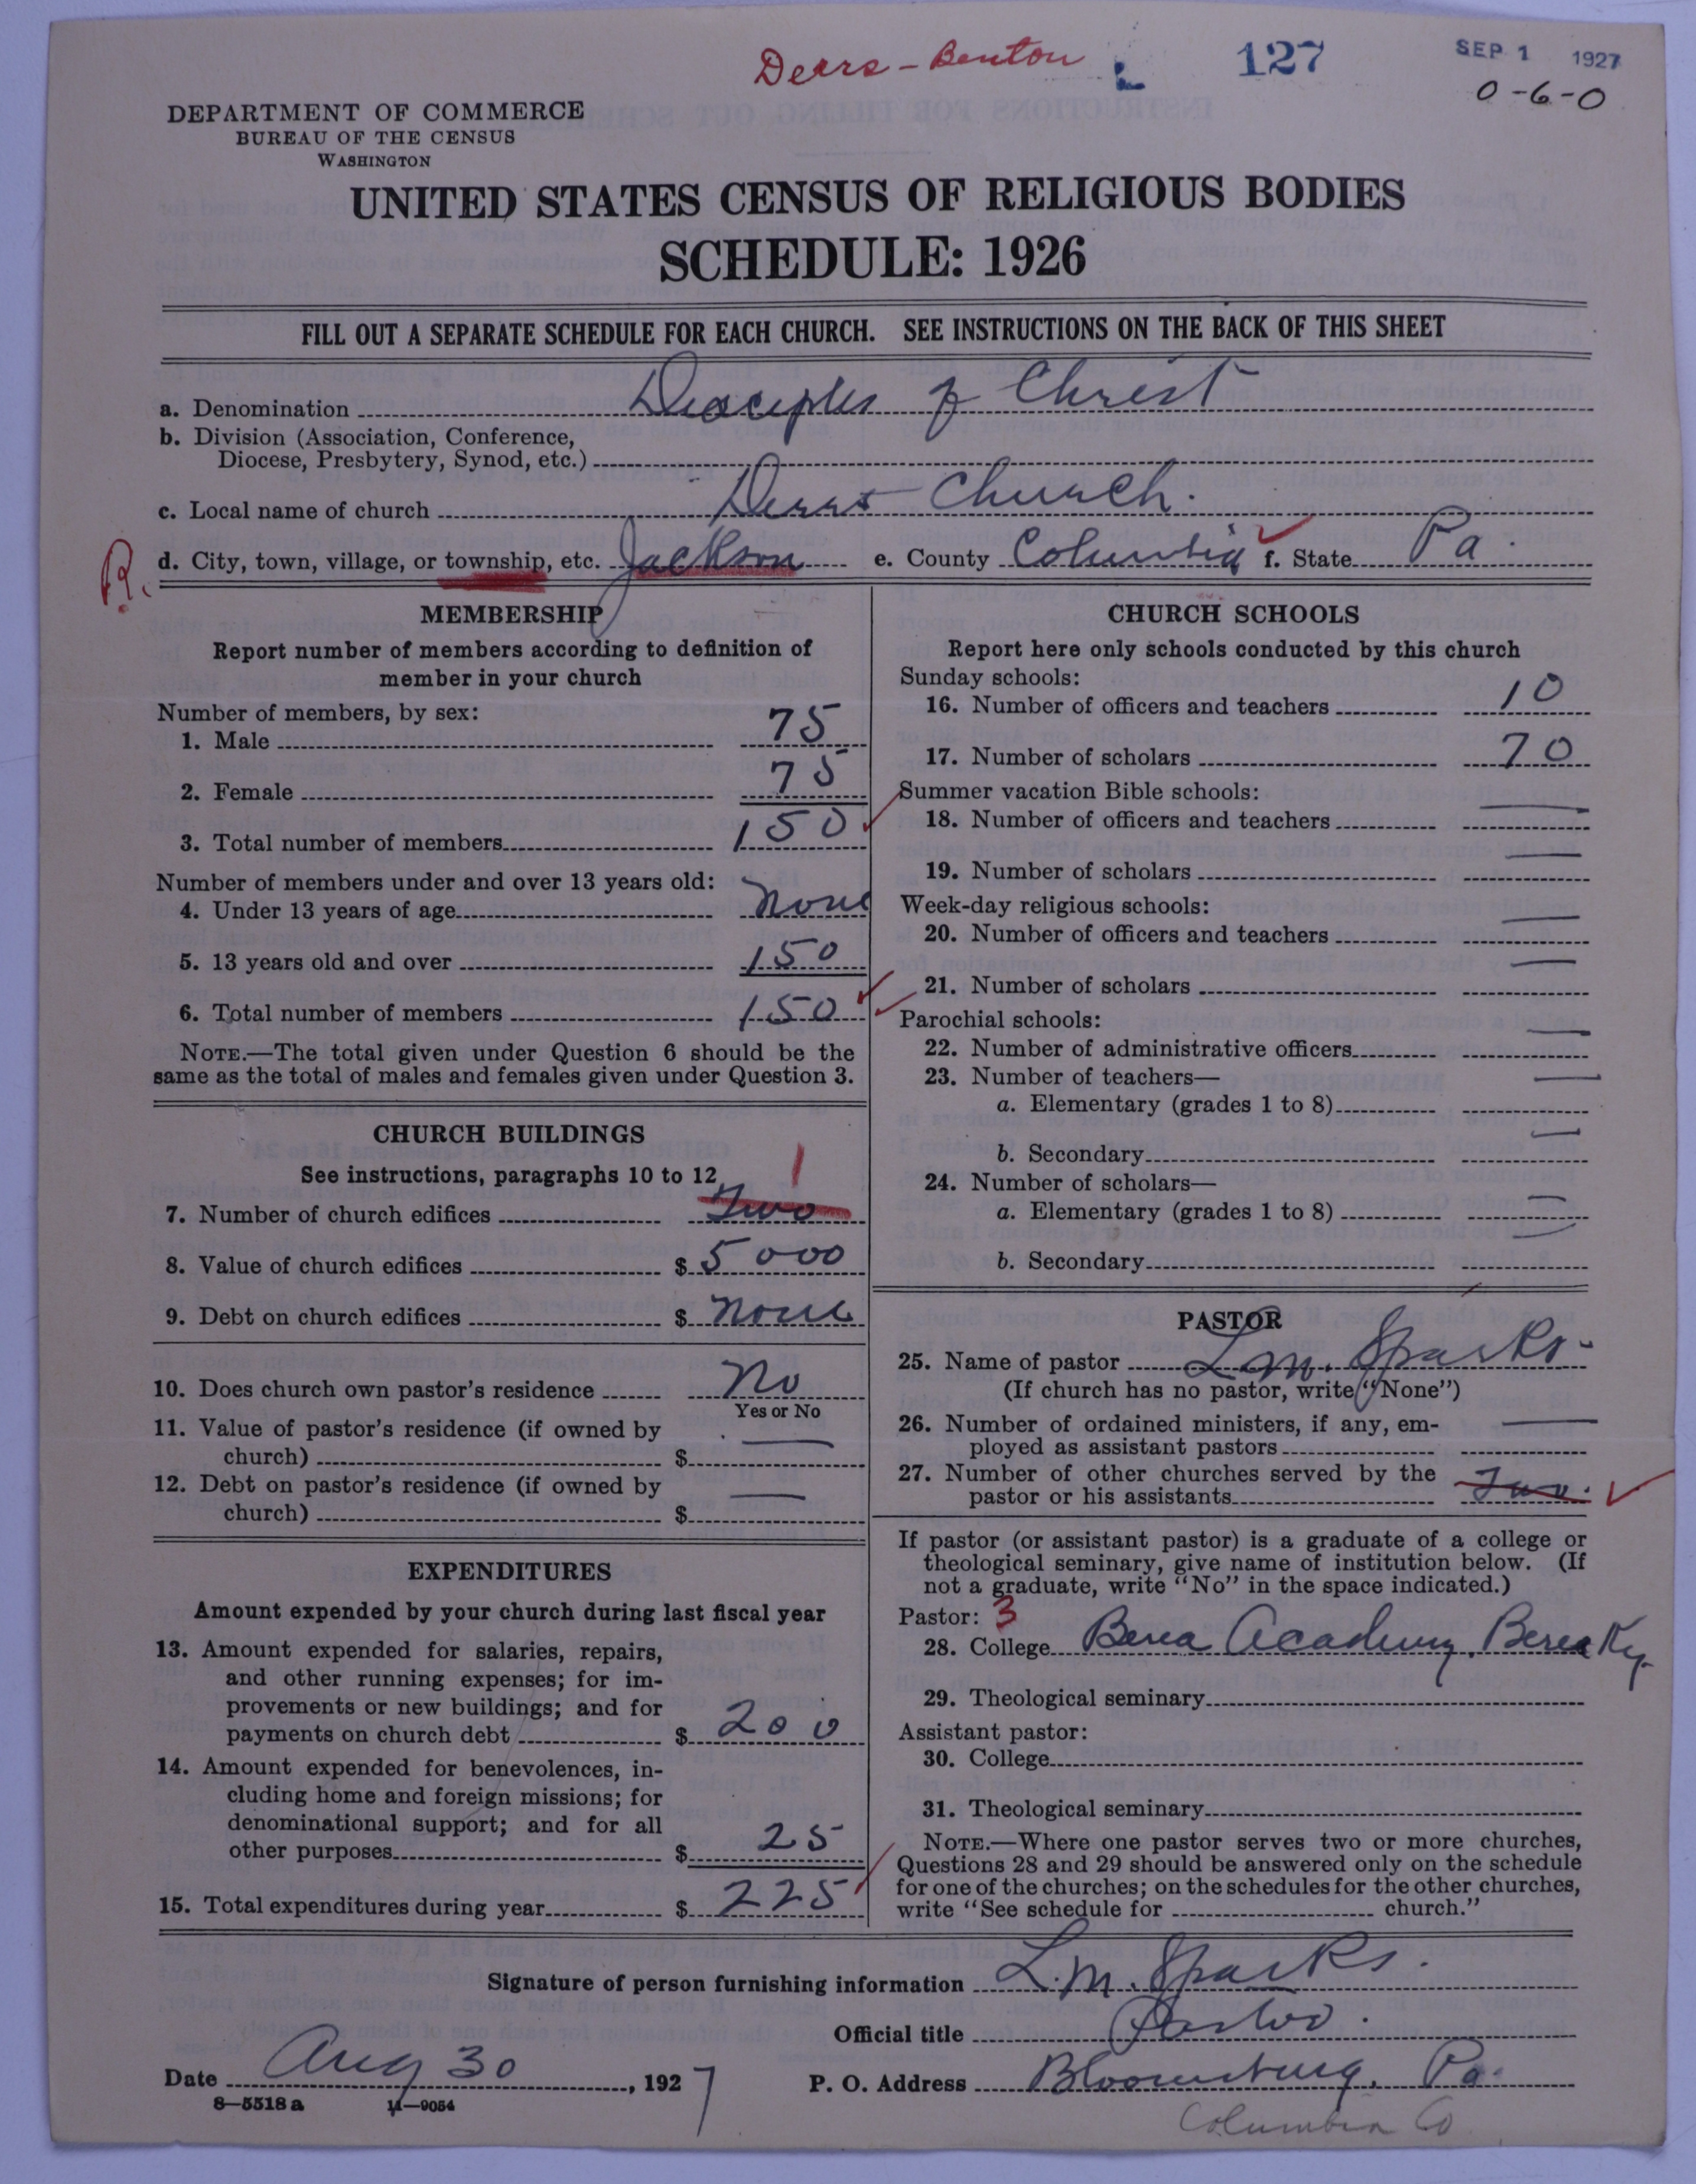 Derrs - Benton L 127 SEP 1 1927
0-6-0
DEPARTMENT OF COMMERCE
BUREAU OF THE CENSUS
WASHINGTON
UNITED STATES CENSUS OF RELIGIOUS BODIES
SCHEDULE: 1926
FILL OUT A SEPARATE SCHEDULE FOR EACH CHURCH. SEE INSTRUCTIONS ON THE BACK OF THIS SHEET
a. Denomination Disciples of Christ
b. Division (Association, Conference,
Diocese, Presbytery, Synod, etc.)
c. Local name of church Derrs Church.
R. d. City, town, village, or township, etc. Jackson e. County Columbia f. State Pa.
MEMBERSHIP
Report number of members according to definition of
member in your church
Number of members, by sex:
1. Male 75
2. Female 75
3. Total number of members 150
Number of members under and over 13 years old:
4. Under 13 years of age none
5. 13 years old and over 150
6. Total number of members 150
NOTE.—The total given under Question 6 should be the
same as the total of males and females given under Question 3.
CHURCH BUILDINGS
See instructions, paragraphs 10 to 12
1
7. Number of church edifices Two
8. Value of church edifices $ 5000
9. Debt on church edifices $ none
10. Does church own pastor's residence No
Yes or No
11. Value of pastor's residence (if owned by
church) $ —
12. Debt on pastor's residence (if owned by
church) $ —
EXPENDITURES
Amount expended by your church during last fiscal year
13. Amount expended for salaries, repairs,
and other running expenses; for im-
provements or new buildings; and for
payments on church debt $ 200
14. Amount expended for benevolences, in-
cluding home and foreign missions; for
denominational support; and for all
other purposes $ 25
15. Total expenditures during year $ 225
CHURCH SCHOOLS
Report here only schools conducted by this church
Sunday schools:
16. Number of officers and teachers 10
17. Number of scholars 70
Summer vacation Bible schools:
18. Number of officers and teachers —
19. Number of scholars —
Week-day religious schools:
20. Number of officers and teachers —
21. Number of scholars —
Parochial schools:
22. Number of administrative officers —
23. Number of teachers—
a. Elementary (grades 1 to 8) —
b. Secondary —
24. Number of scholars—
a. Elementary (grades 1 to 8) —
b. Secondary —
PASTOR
25. Name of pastor L.M. Sparks.
(If church has no pastor, write "None")
26. Number of ordained ministers, if any, em-
ployed as assistant pastors —
27. Number of other churches served by the
pastor or his assistants Two.
If pastor (or assistant pastor) is a graduate of a college or
theological seminary, give name of institution below. (If
not a graduate, write "No" in the space indicated.)
Pastor: 3
28. College Berea Academy, Berea Ky.
29. Theological seminary
Assistant pastor:
30. College
31. Theological seminary
NOTE.—Where one pastor serves two or more churches,
Questions 28 and 29 should be answered only on the schedule
for one of the churches; on the schedules for the other churches,
write "See schedule for church."
Signature of person furnishing information L.M. Sparks.
Official title Pastor.
Date Aug 30, 1927 P. O. Address Bloomsburg, Pa.
8—5518 a 11—9054
Columbia Co